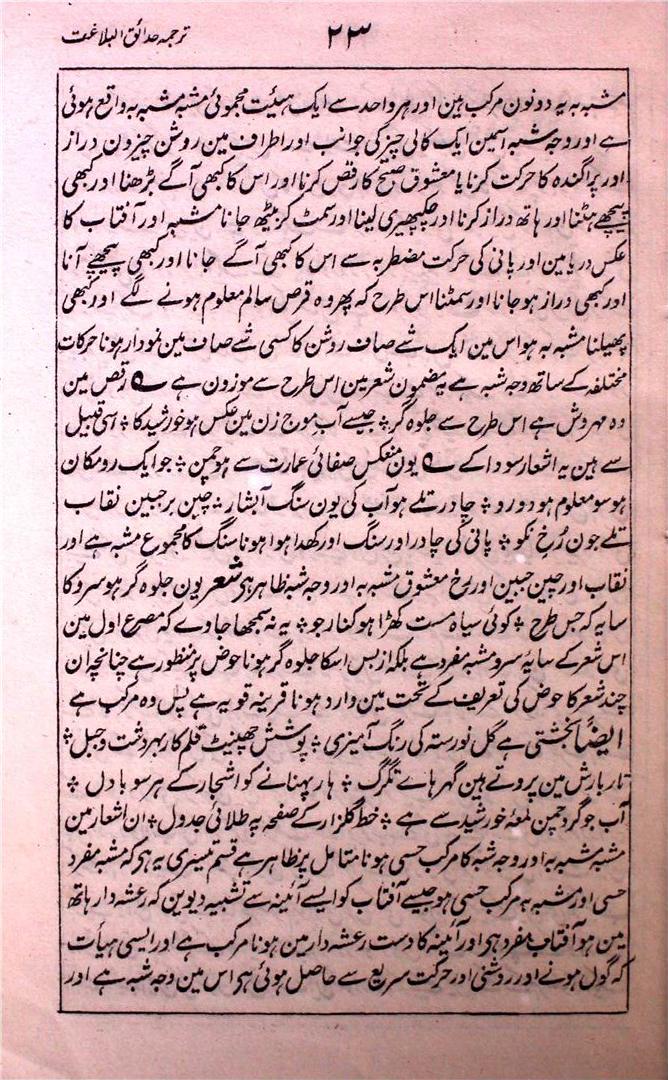 ترجمہ حدائق البلاغت
۲۳
مشبہ بہ یہ دونون مرکب ہین اور ہر واحد سے ایک ہیئت مجموعی مشبہ مشبہ بہ واقع ہوئی
ہے اور وجہ شبہ اسمین ایک کالی چیز کی جوانب اور اطراف مین روشن چیزون دراز
اور پراگندہ کا حرکت کرنا یا معشوق صبیح کا رقص کرنا اور اس کا کبھی آگے بڑھنا اور کبھی
پیچھے ہٹنا اور ہاتھ دراز کرنا اور چکپھیری لینا اور سمٹ کر بیٹھ جانا مشبہ اور آفتاب کا
عکس دریا مین اور پانی کی حرکت مضطربہ سے اس کا کبھی آگے جانا اور کبھی پیچھے آنا
اور کبھی دراز ہو جانا اور سمٹنا اس طرح کہ پھر وہ قرص سالم معلوم ہونے لگے اور کبھی
پھیلنا مشبہ بہ ہو اس مین ایک شے صاف روشن کا کسی شے صاف مین نمودار ہونا حرکات
مختلفہ کے ساتھ وجہ شبہ ہے یہ مضمون شعر مین اس طرح سے موزون ہے ؎ رقص مین
وہ مہروش ہے اس طرح سے جلوہ گر ؞ جیسے آب موج زن مین عکس ہو خورشید کا ؞ اسی قبیل
سے ہین یہ اشعار سودا کے ؎ یون منعکس صفائی عمارت سے ہو چمن ؞ جو ایک رو مکان
ہو سو معلوم ہو دو رو ؞ چادر تلے ہو آب کی یون سنگ آبشار ؞ چین بر جبین نقاب
تلے جون رُخ نکو ؞ پانی کی چادر اور سنگ اور کھدا ہوا ہونا سنگ کا مجموع مشبہ ہے اور
نقاب اور چین جبین اور رخ معشوق مشبہ بہ اور وجہ شبہ ظاہر ہی شعر یون جلوہ گر ہو سرو کا
سایہ کہ جس طرح ؞ کوئی سیاہ مست کھڑا ہو کنار جو ؞ یہ نہ سمجھا جاوے کہ مصرع اول مین
اس شعر کے سایۂ سرو مشبہ مفرد ہے بلکہ از بس اسکا جلوہ گر ہونا حوض پر منظور ہے چنانچہ ان
چند شعر کا حوض کی تعریف کے تحت مین وارد ہونا قرینہ قویہ ہے پس وہ مرکب ہے
ایضاً بخشتی ہے گل نورستہ کی رنگ آمیزی ؞ پوشش چھینٹ قلم کار بہر دشت و جبل ؞
تار بارش مین پروتے ہین گہر ہاے تگرگ ؞ ہار پہنانے کو اشجار کے ہر سو بادل ؞
آب جو گرد چمن لمعۂ خورشید سے ہے ؞ خط گلزار کے صفحہ پہ طلائی جدول ؞ ان اشعار مین
مشبہ مشبہ بہ اور وجہ شبہ کا مرکب حسی ہونا متامل پر ظاہر ہے قسم تیسری یہ ہی کہ مشبہ مفرد
حسی اور مشبہ بہ مرکب حسی ہو جیسے آفتاب کو ایسے آئینہ سے تشبیہ دیوین کہ رعشہ دار ہاتھ
مین ہو آفتاب مفرد ہی اور آئینہ کا دست رعشہ دار مین ہونا مرکب ہے اور ایسی ہیأت
کہ گول ہونے اور روشنی اور حرکت سریع سے حاصل ہوئی ہی اس مین وجہ شبہ ہے اور